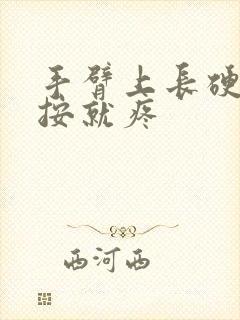 手臂上長硬
按就疼
西河西